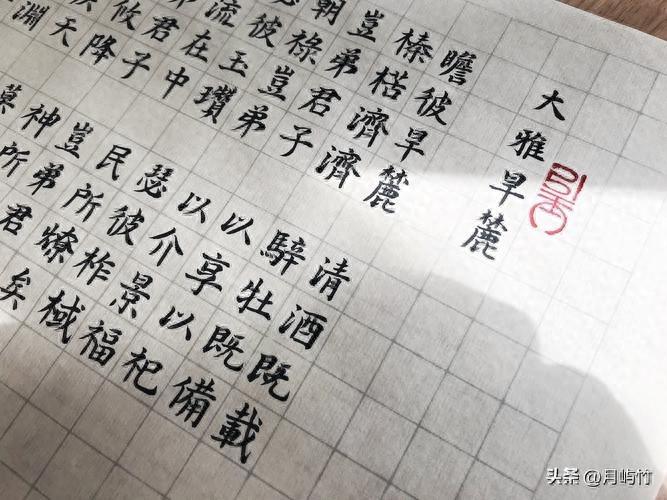 大雅旱麓
瞻彼旱麓
榛楛濟濟
豈弟君子
朝祿豈弟
彼玉瓚
流在中
君子
攸降
天
淵
清酒既載
騂牡既備
以享以祀
以介景福
瑟彼柞棫
民所燎矣
豈弟君
神所
莫
头条 @月屿竹